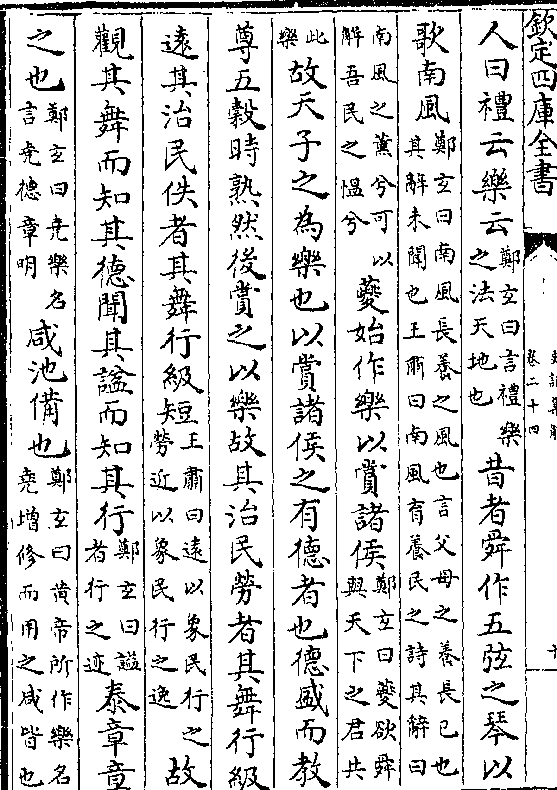 欽定四庫全書
史記集解
卷二十四
人曰禮云樂云鄭玄曰言禮樂之法天地也昔者舜作五弦之琴以
歌南風鄭玄曰南風長養之風也言父母之養長已也其解未聞也王肅曰南風育養民之詩其解曰
南風之薰兮可以解吾民之愠兮夔始作樂以賞諸侯鄭玄曰夔欲舜與天下之君共
此樂故天子之為樂也以賞諸侯之有德者也德盛而教
尊五穀時熟然後賞之以樂故其治民勞者其舞行級
遠其治民佚者其舞行級短王肅曰遠以象民行之勞近以象民行之逸故
觀其舞而知其德聞其謚而知其行鄭玄曰謚者行之迹泰章章
之也鄭玄曰堯樂名言堯德章明咸池備也鄭玄曰黄帝所作樂名堯增修而用之咸皆也